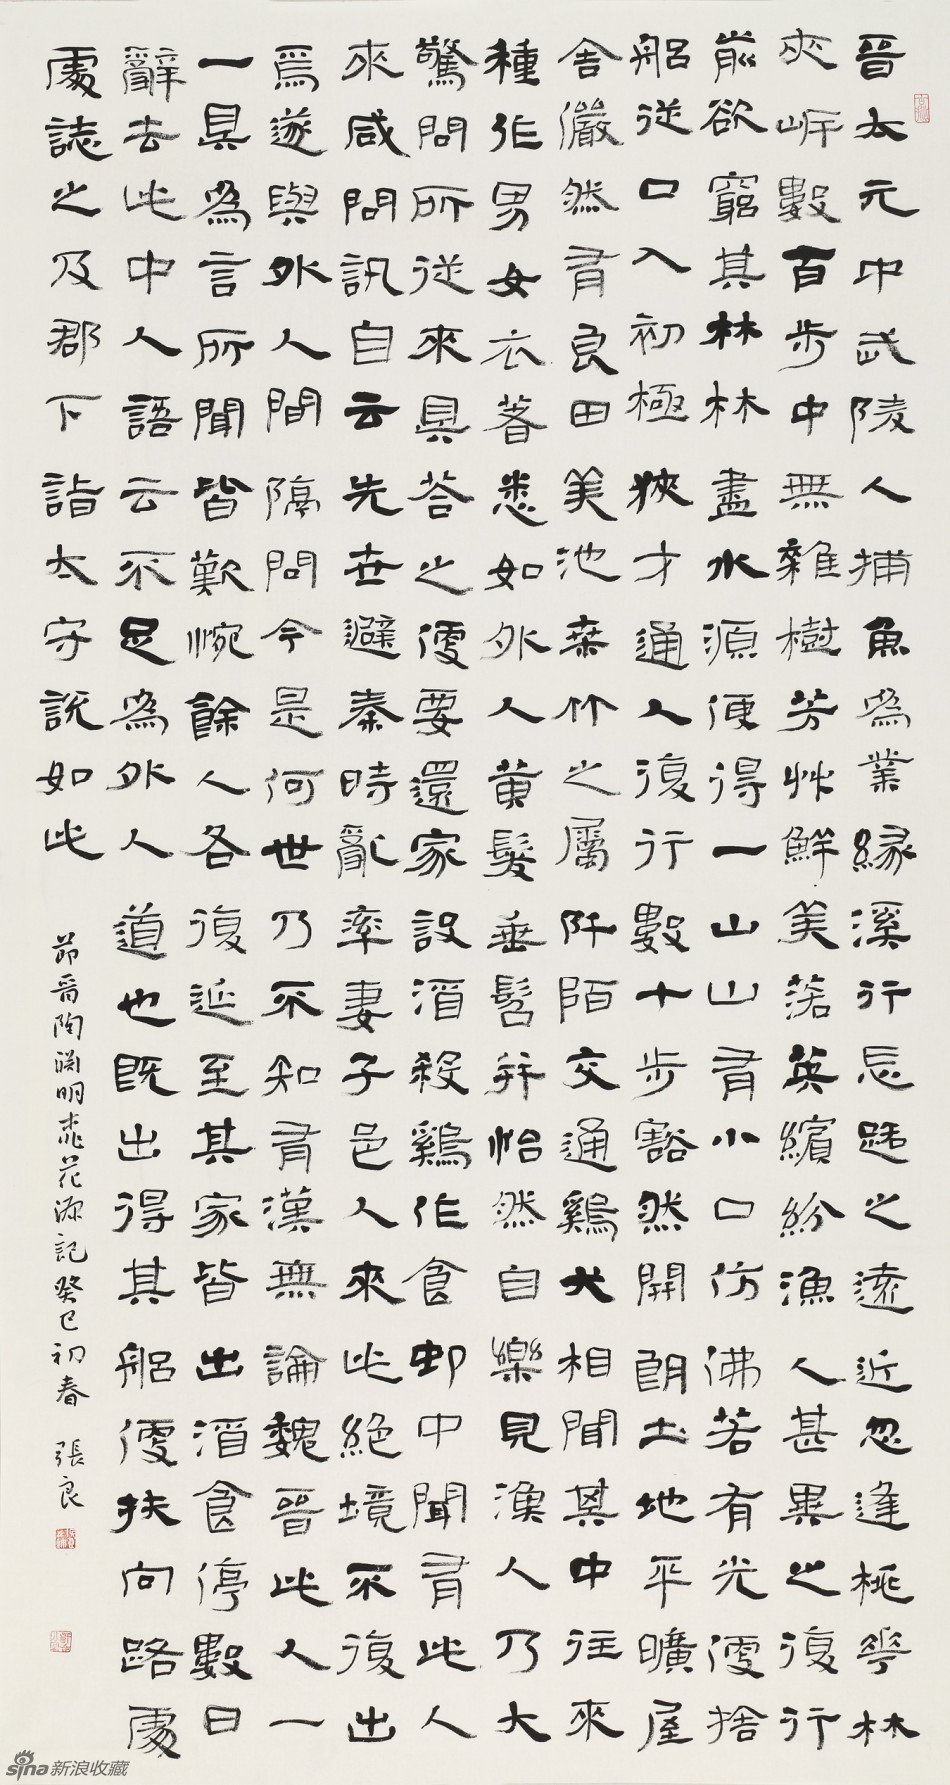 晉太元中武陵人捕魚為業緣溪行忘路之遠近忽逢桃華林
夾岸數百步中無雜樹芳艸鮮美落英繽紛漁人甚異之復行
前欲窮其林林盡水源便得一山山有小口仿佛若有光便捨
船從口入初極狹才通人復行數十步豁然開朗土地平曠屋
舍儼然有良田美池桑竹之屬阡陌交通鷄犬相聞其中往來
種作男女衣著悉如外人黃髮垂髫并怡然自樂見漁人乃大
驚問所從來具答之便要還家設酒殺鷄作食邨中聞有此人
來咸問訊自云先世避秦時亂率妻子邑人來此絕境不復出
焉遂與外人間隔問今是何世乃不知有漢無論魏晉此人一
一具為言所聞皆歎惋餘人各復延至其家皆出酒食停數日
辭去此中人語云不足為外人道也既出得其船便扶向路處
處誌之及郡下詣太守說如此
節晉陶淵明桃花源記癸巳初春 張良
sina新浪收藏